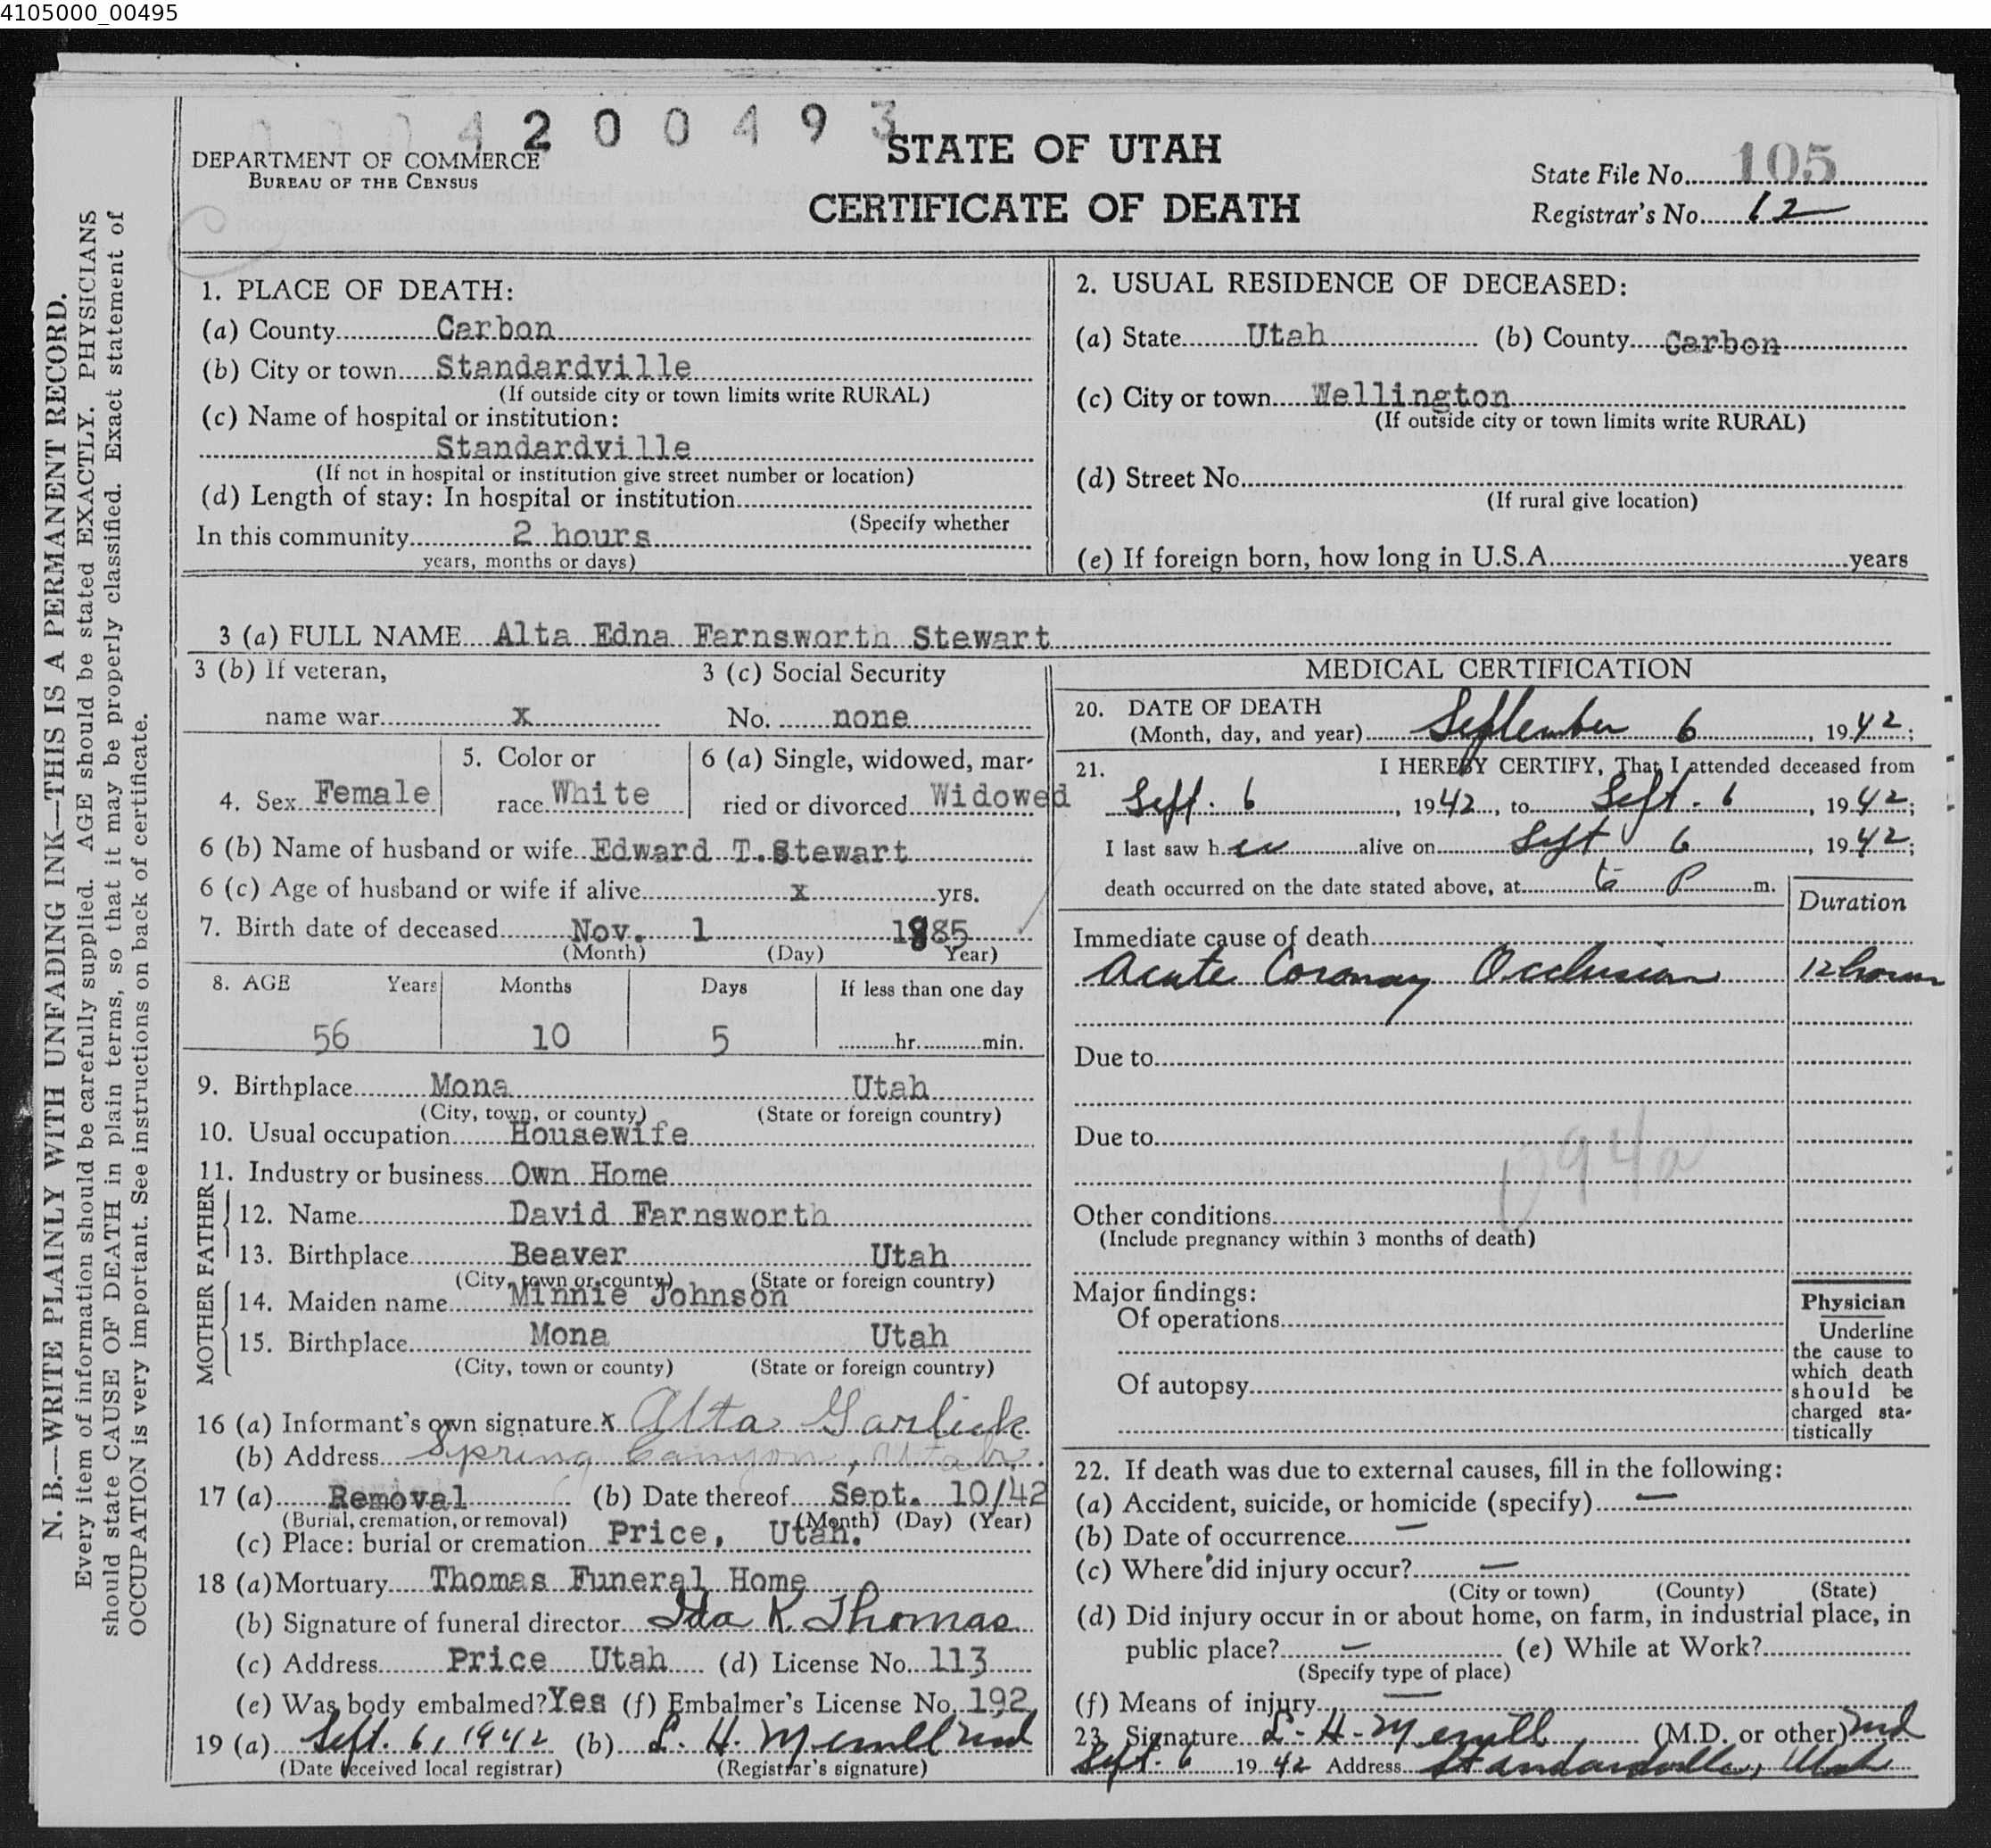 4105000_00495
4 2 0 0 4 9 3
DEPARTMENT OF COMMERCE
BUREAU OF THE CENSUS
STATE OF UTAH
CERTIFICATE OF DEATH
State File No. 105
Registrar's No. 12
N. B.—WRITE PLAINLY WITH UNFADING INK—THIS IS A PERMANENT RECORD.
Every item of information should be carefully supplied. AGE should be stated EXACTLY. PHYSICIANS
should state CAUSE OF DEATH in plain terms, so that it may be properly classified. Exact statement of
OCCUPATION is very important. See instructions on back of certificate.
1. PLACE OF DEATH:
(a) County Carbon
(b) City or town Standardville
(If outside city or town limits write RURAL)
(c) Name of hospital or institution:
Standardville
(If not in hospital or institution give street number or location)
(d) Length of stay: In hospital or institution
(Specify whether
In this community 2 hours
years, months or days)
2. USUAL RESIDENCE OF DECEASED:
(a) State Utah (b) County Carbon
(c) City or town Wellington
(If outside city or town limits write RURAL)
(d) Street No.
(If rural give location)
(e) If foreign born, how long in U.S.A. years
3 (a) FULL NAME Alta Edna Farnsworth Stewart
3 (b) If veteran,
name war x
3 (c) Social Security
No. none
4. Sex Female
5. Color or
race White
6 (a) Single, widowed, mar-
ried or divorced Widowed
6 (b) Name of husband or wife Edward T. Stewart
6 (c) Age of husband or wife if alive x yrs.
7. Birth date of deceased Nov. 1 1885
(Month) (Day) Year)
8. AGE Years Months Days If less than one day
56 10 5 hr. min.
9. Birthplace Mona Utah
(City, town, or county) (State or foreign country)
10. Usual occupation Housewife
11. Industry or business Own Home
FATHER
12. Name David Farnsworth
13. Birthplace Beaver Utah
(City, town or county) (State or foreign country)
MOTHER
14. Maiden name Minnie Johnson
15. Birthplace Mona Utah
(City, town or county) (State or foreign country)
16 (a) Informant's own signature x Alta Garlick
(b) Address Spring Canyon, Utah.
17 (a) Removal (b) Date thereof Sept. 10/42
(Burial, cremation, or removal) (Month) (Day) (Year)
(c) Place: burial or cremation Price, Utah.
18 (a) Mortuary Thomas Funeral Home
(b) Signature of funeral director Ida R. Thomas
(c) Address Price Utah (d) License No. 113
(e) Was body embalmed? Yes (f) Embalmer's License No. 192
19 (a) Sept. 6, 1942 (b) L. H. Merrill md
(Date received local registrar) (Registrar's signature)
MEDICAL CERTIFICATION
20. DATE OF DEATH
(Month, day, and year) September 6, 1942;
21. I HEREBY CERTIFY, That I attended deceased from
Sept. 6, 1942, to Sept. 6, 1942;
I last saw her alive on Sept 6, 1942;
death occurred on the date stated above, at P m.
Duration
Immediate cause of death
Acute Coronary Occlusion 12 hours
Due to
Due to
94a
Other conditions
(Include pregnancy within 3 months of death)
Major findings:
Of operations
Of autopsy
Physician
Underline
the cause to
which death
should be
charged sta-
tistically
22. If death was due to external causes, fill in the following:
(a) Accident, suicide, or homicide (specify) —
(b) Date of occurrence —
(c) Where did injury occur? —
(City or town) (County) (State)
(d) Did injury occur in or about home, on farm, in industrial place, in
public place? — (e) While at Work?
(Specify type of place)
(f) Means of injury —
23. Signature L. H. Merrill (M.D. or other) md
Sept. 6 1942 Address Standardville, Utah